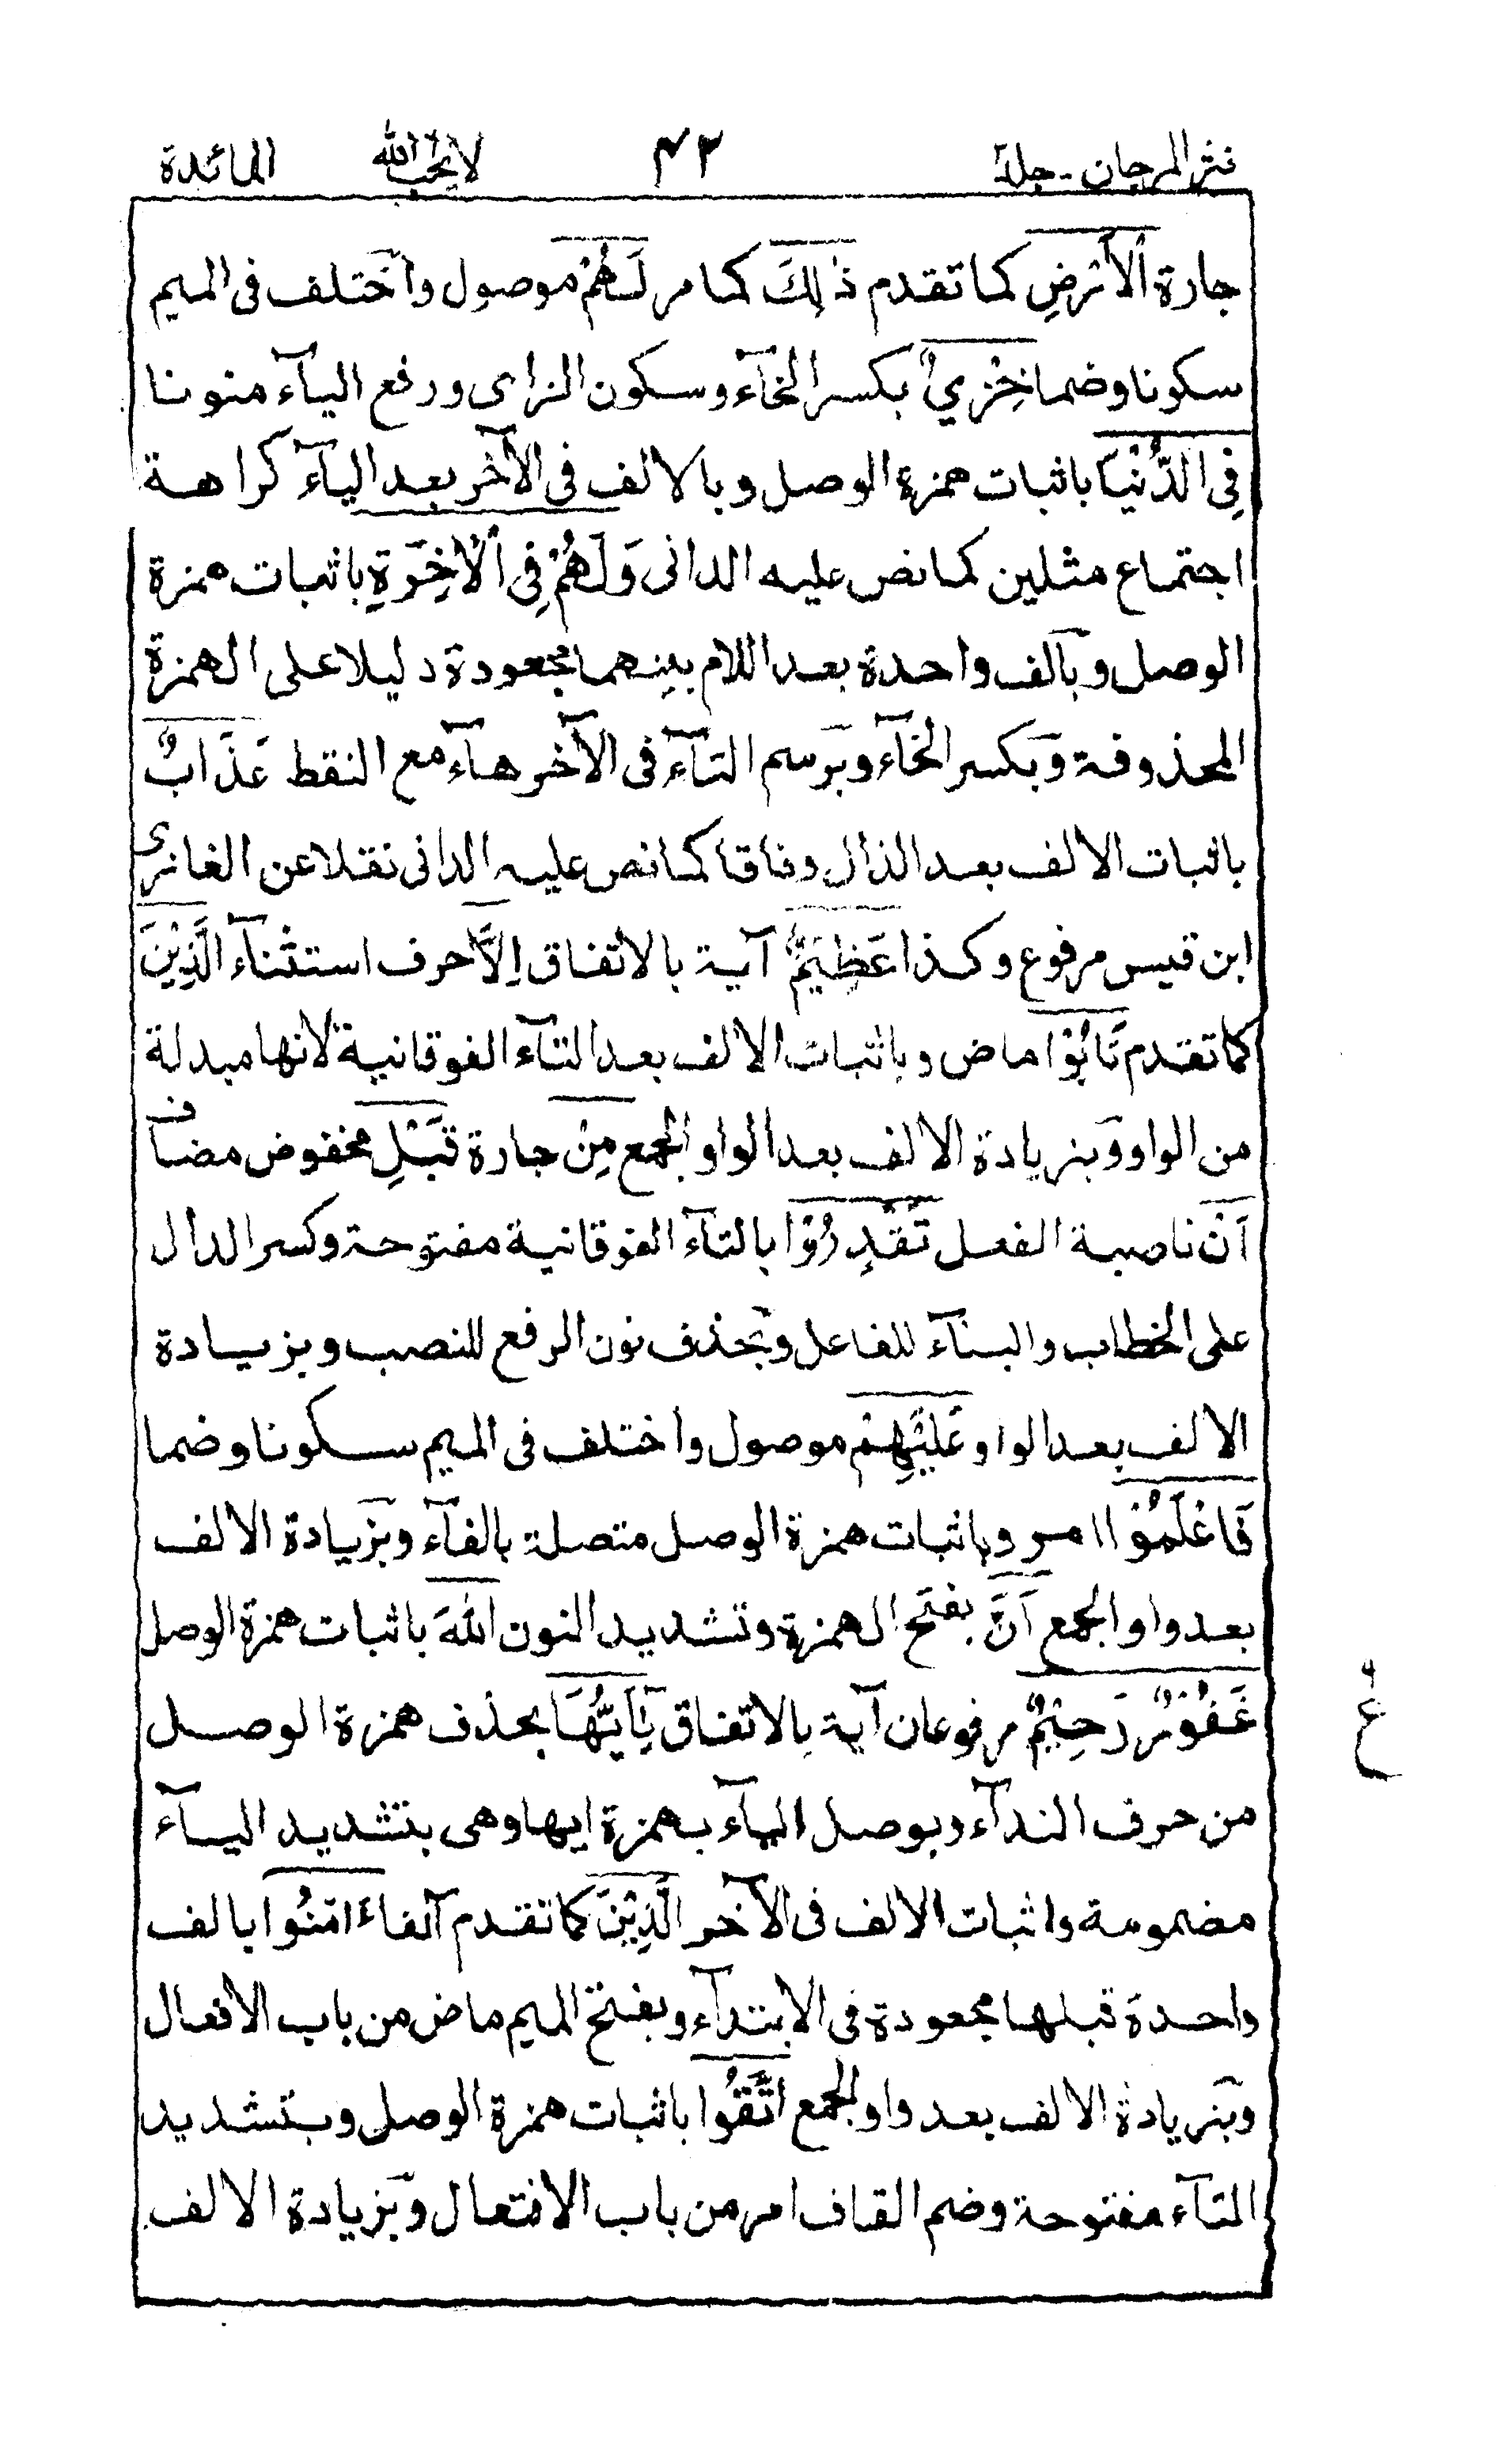 نثر المرجان - جلد ٢ ٤٢ لا يحب الله المائدة
جارة اَلْاَرْضِ كما تقدم ذٰلِكَ كما مر لَهُمْ موصول واختلف فى الميم
سكونا وضما خِزْيٌ بكسر الخآء وسكون الزاى ورفع اليآء منونا
فِى الدُّنْيَا باثبات همزة الوصل وبالالف فى الآخر بعد اليآء كراهة
اجتماع مثلين كما نص عليه الدانى وَلَهُمْ فِى الْاٰخِرَةِ باثبات همزة
الوصل وبالف واحدة بعد اللام بينهما مجعودة دليلا على الهمزة
المحذوفة وبكسر الخآء وبرسم التآء فى الآخر هآء مع النقط عَذَابٌ
باثبات الالف بعد الذال وفاقا كما نص عليه الدانى نقلا عن الغازى
ابن قيس مرفوع وكذا عَظِيْمٌ آية بالاتفاق اِلَّا حرف استثنآء الَّذِيْنَ
كما تقدم تَابُوْا ماض وباثبات الالف بعد التآء الفوقانية لانها مبدلة
من الواو وبزيادة الالف بعد الواو الجمع مِنْ جارة قَبْلِ مخفوض مضاف
اَنْ ناصبة الفعل تَقْدِرُوْا بالتآء الفوقانية مفتوحة وكسر الدال
على الخطاب والبنآء للفاعل وبحذف نون الرفع للنصب وبزيادة
الالف بعد الواو عَلَيْهِمْ موصول واختلف فى الميم سكونا وضما
فَاعْلَمُوْا امر وباثبات همزة الوصل متصلة بالفآء وبزيادة الالف
بعد واو الجمع اَنَّ بفتح الهمزة وتشديد النون اللهَ باثبات همزة الوصل
غَفُوْرٌ رَحِيْمٌ مرفوعان آية بالاتفاق يٰاَيُّهَا بحذف همزة الوصل
ع
من حرف الندآء وبوصل اليآء بهمزة ايها وهى بتشديد اليآء
مضمومة واثبات الالف فى الآخر الَّذِيْنَ كما تقدم آنفا ءَامَنُوا بالف
واحدة قبلها مجعودة فى الابتدآء وبفتح الميم ماض من باب الافعال
وبزيادة الالف بعد واو الجمع اتَّقُوا باثبات همزة الوصل وبتشديد
التآء مفتوحة وضم القاف امر من باب الافتعال وبزيادة الالف